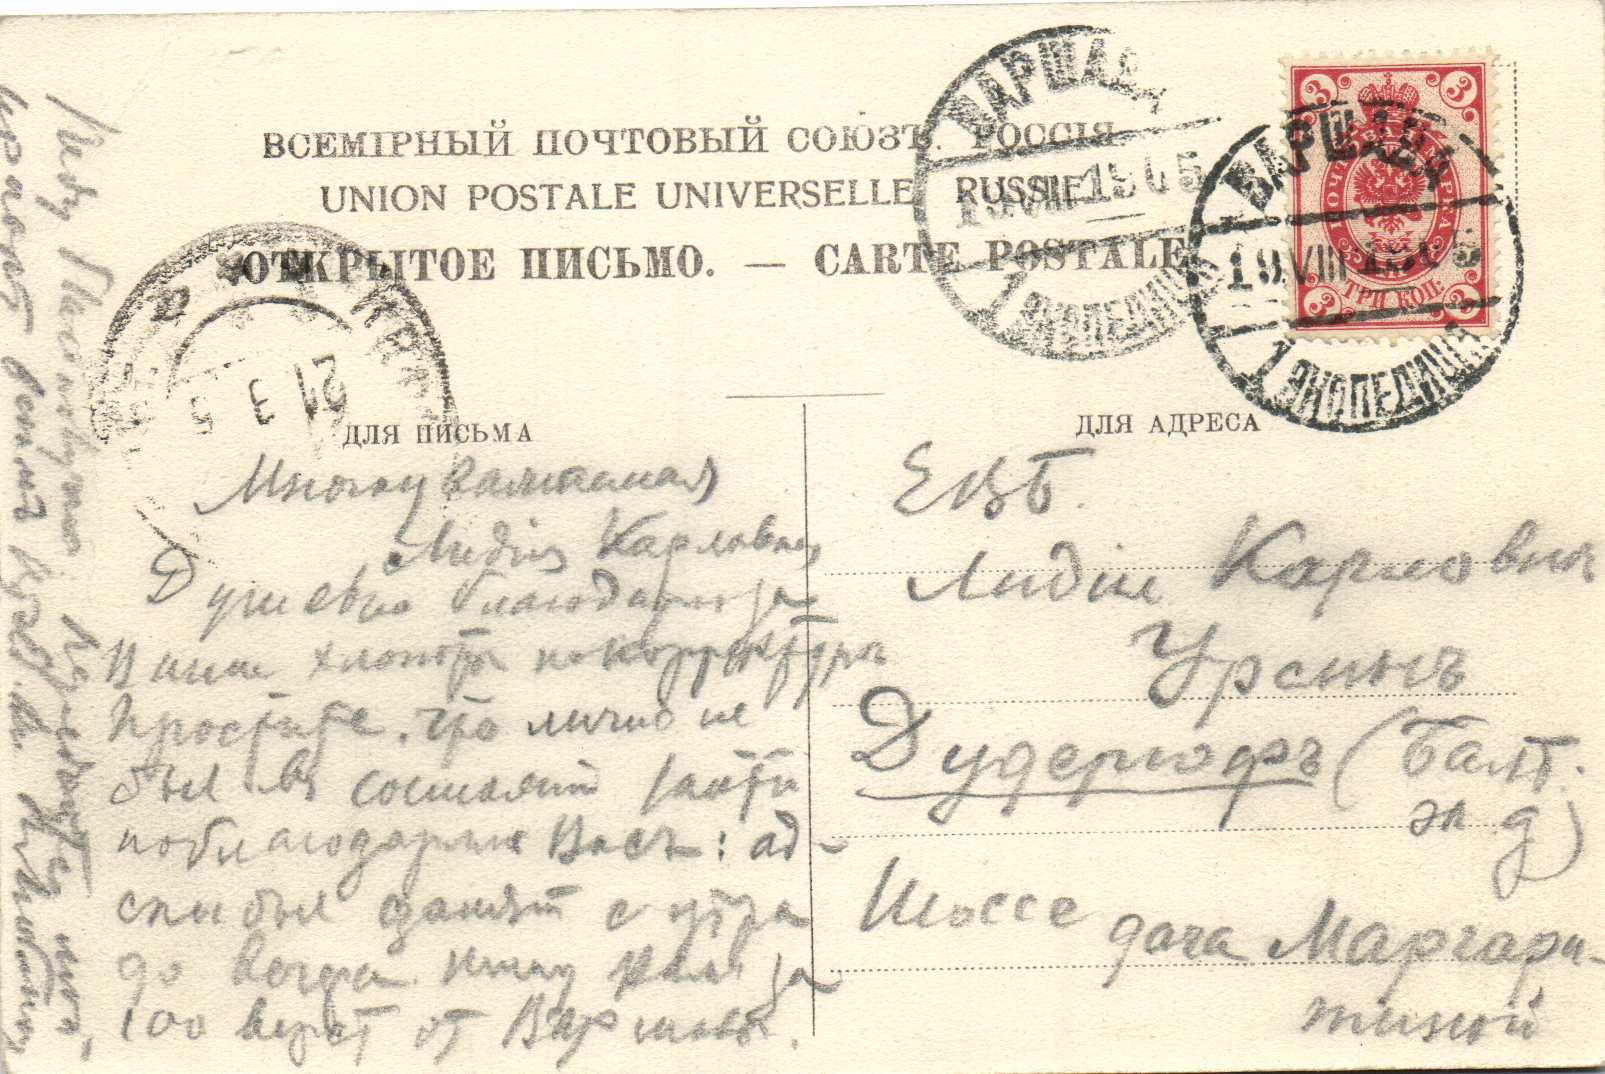 ВСЕМІРНЫЙ ПОЧТОВЫЙ СОЮЗЪ. РОССІЯ
UNION POSTALE UNIVERSELLE. RUSSIE
ОТКРЫТОЕ ПИСЬМО. — CARTE POSTALE
ВАРШАВА
19 VIII 1905
1 ЭКСПЕДИЦІЯ
ВАРШАВА
19 VIII 1905
1 ЭКСПЕДИЦІЯ
3 3
ПОЧТОВАЯ МАРКА
ТРИ КОП.
3 3
21 3 5
ДЛЯ ПИСЬМА
Многоуважаемая
Лидія Карловна,
Душевно благодарю за
Ваши хлопоты по корректуре
Простите, что лично не
был въ состояніи зайти
поблагодарить Васъ: ад-
ски былъ занятъ с утра
до
100 верст от Варшавы.
ДЛЯ АДРЕСА
ЕВБ.
Лидіи Карловнѣ
Урсинъ
Дудергофъ (Балт.
ж д)
Шоссе дача Маргари-
тиной